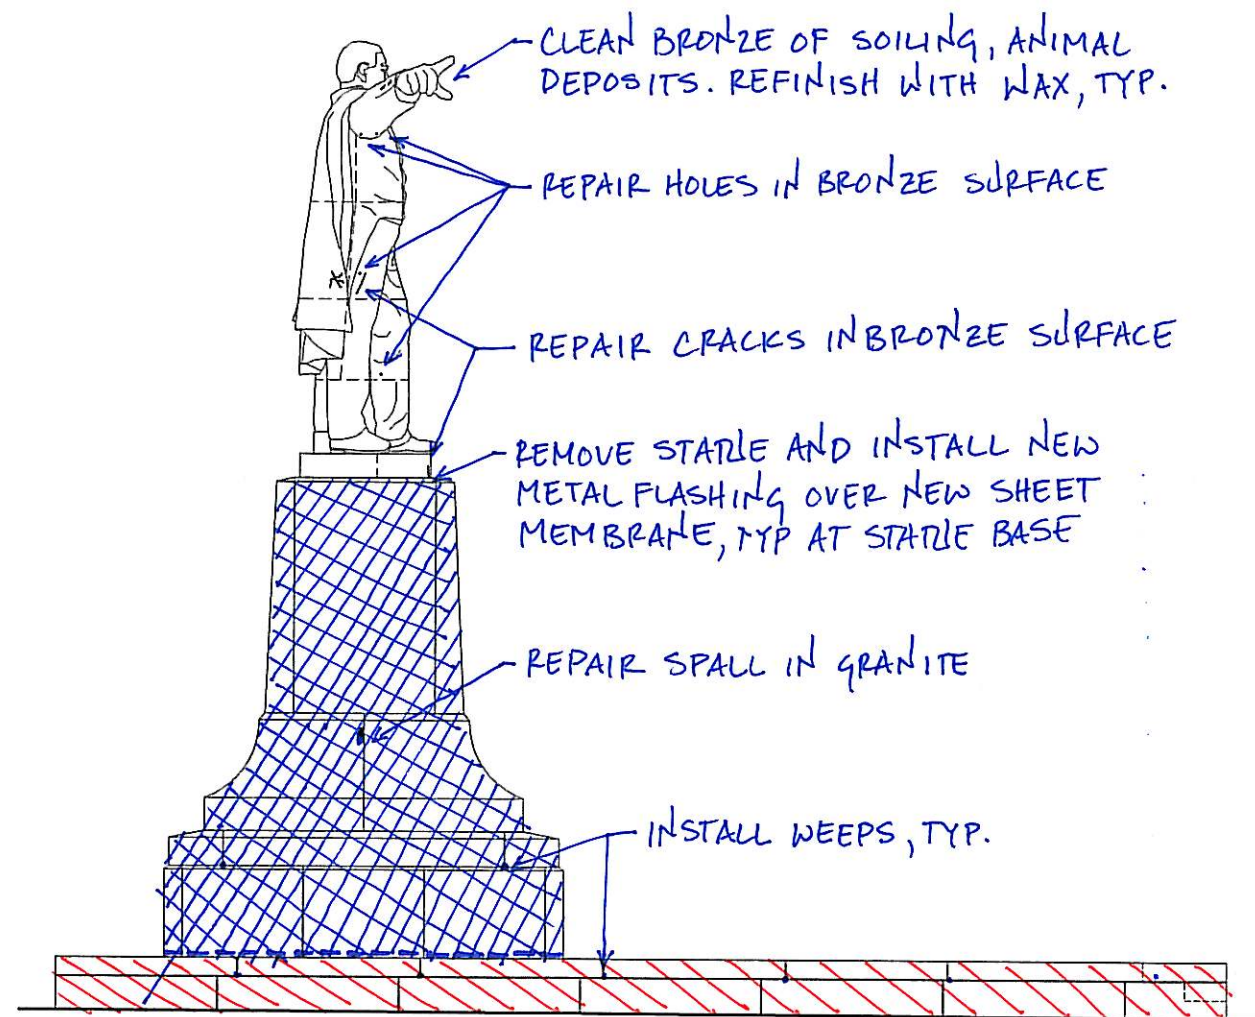 CLEAN BRONZE OF SOILING, ANIMAL
DEPOSITS. REFINISH WITH WAX, TYP.
REPAIR HOLES IN BRONZE SURFACE
REPAIR CRACKS IN BRONZE SURFACE
REMOVE STATUE AND INSTALL NEW
METAL FLASHING OVER NEW SHEET
MEMBRANE, TYP AT STATUE BASE
REPAIR SPALL IN GRANITE
INSTALL WEEPS, TYP.